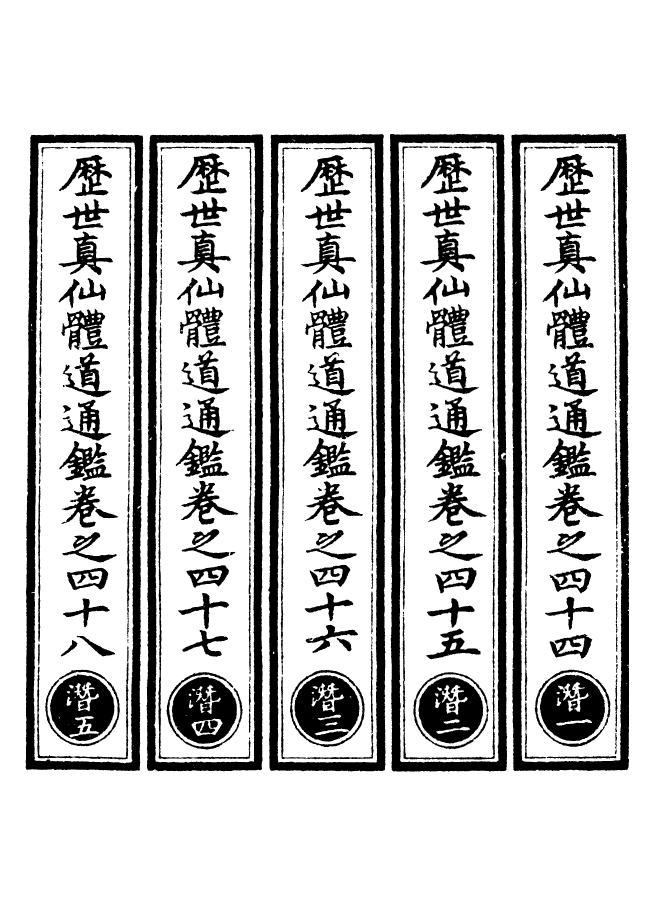 歷世真仙體道通鑑卷之四十四
潛一
歷世真仙體道通鑑卷之四十五
潛二
歷世真仙體道通鑑卷之四十六
潛三
歷世真仙體道通鑑卷之四十七
潛四
歷世真仙體道通鑑卷之四十八
潛五